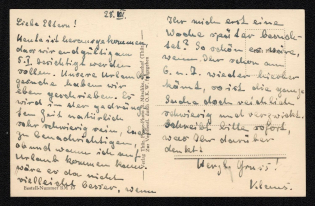 28. XII.
Liebe Eltern!
Heute ist herausgekommen,
dass wir endgültig am
5.I. besichtigt werden
sollen. Unsere Urlaubs-
gesuche haben wir
eben geschrieben. Es
wird in der gedräng-
ten Zeit natürlich
sehr schwierig sein, euch
zu benachrichtigen,
ob und wenn ich auf
Urlaub kommen kann.
wäre es da nicht
vielleicht besser, wenn
Ihr mich erst eine
Woche später besuch-
tet? So schön es wäre,
wenn Ihr schon am
6. u. 7. wieder hierher
kämt, so ist die ganze
Sache doch reichlich
schwierig und verzwickt.
Schreibt bitte sofort,
was Ihr darüber
denkt!
Herzl. Gruss!